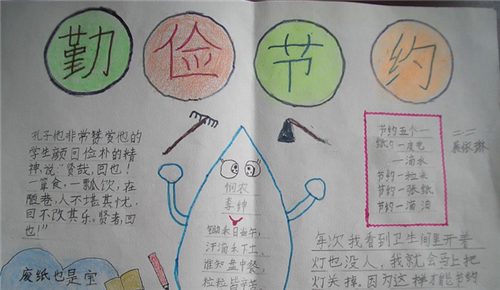 勤俭节约
孔子也非常赞赏他的
学生颜回俭朴的精
神,说"贤哉,回也!
一箪食,一瓢饮,在
陋巷,人不堪其忧,
回不改其乐,贤者,回
也!"
废纸也是宝
悯农
李绅
锄禾日当午,
汗滴禾下土,
谁知盘中餐,
粒粒皆辛苦
节约五个一
一度电
一滴水
节约一粒米
节约一张纸
节约一滴油
二二
年次我看到卫生间里开着
灯也没人,我就会马上把
灯关掉,因为这样才能节约